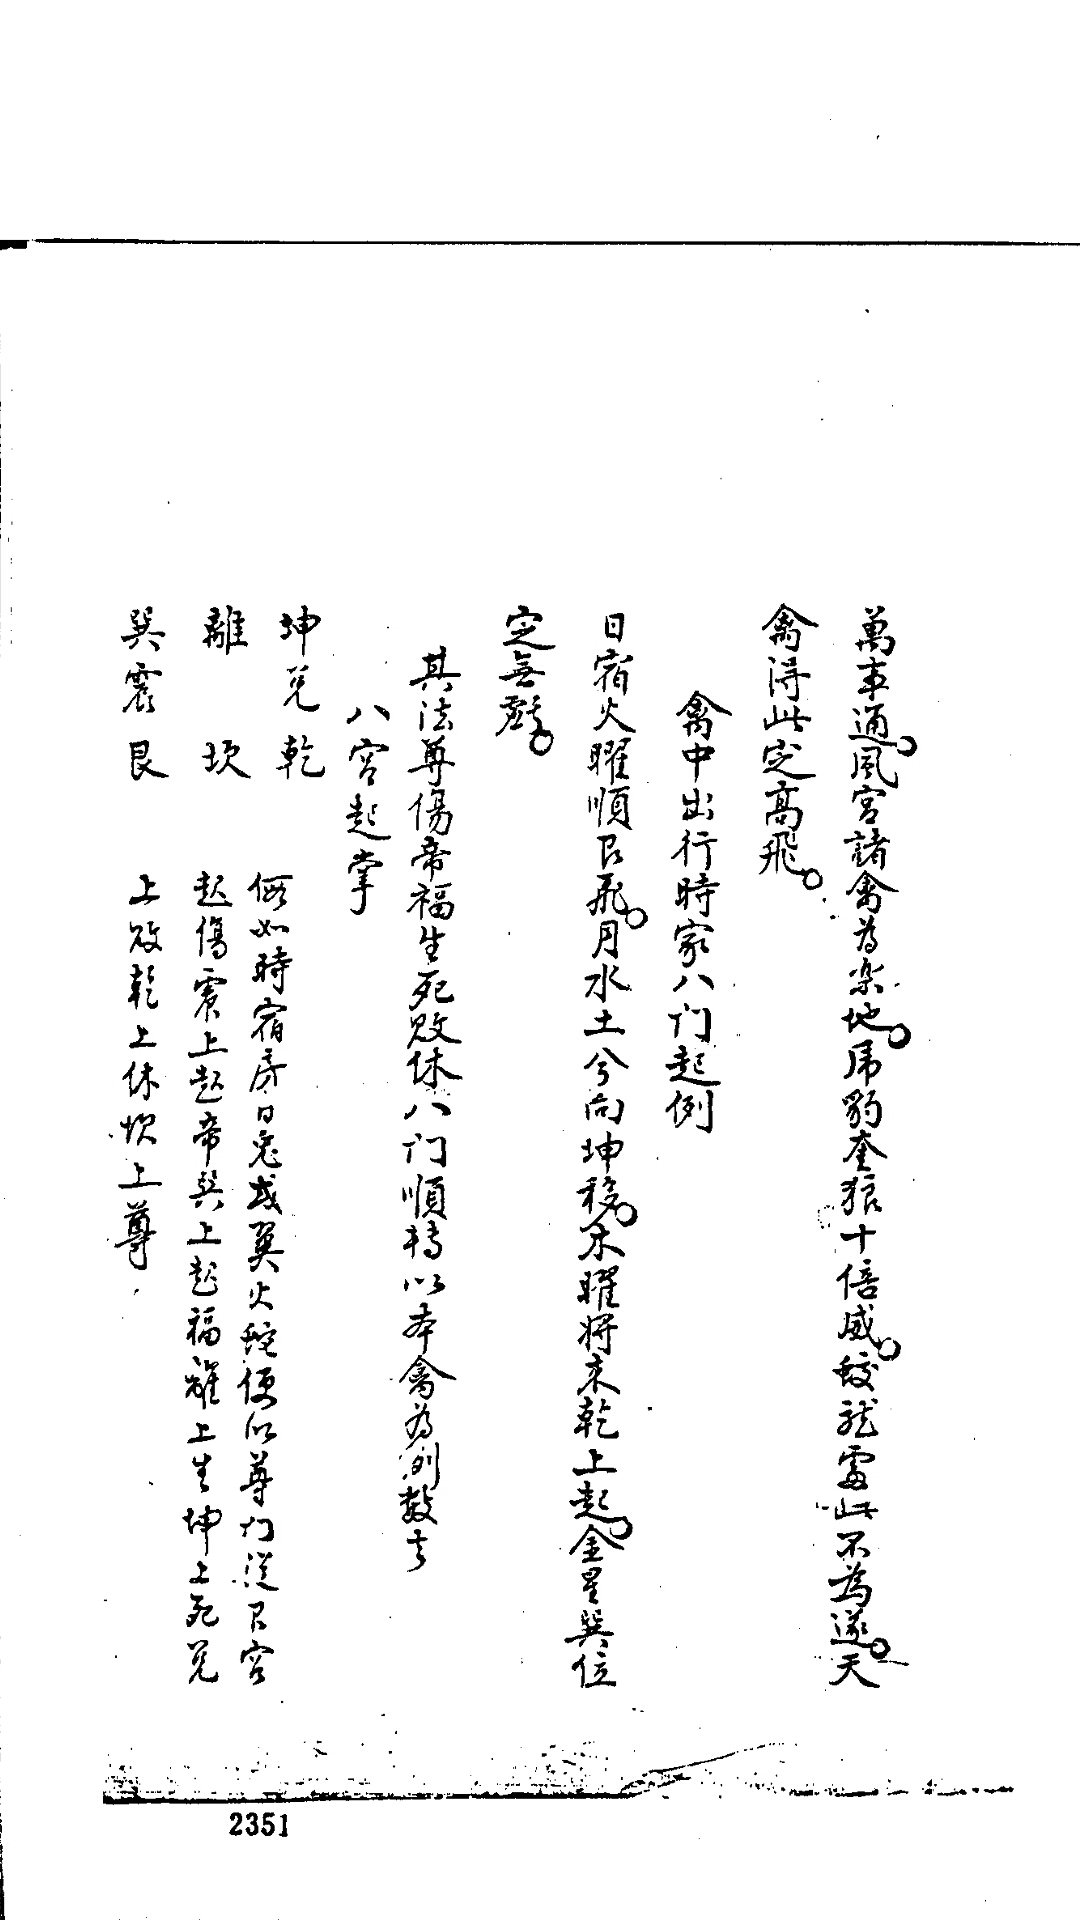 萬事通。風宮諸禽為樂地。虎豹奎狼十倍威。蛟龍雷此不為遂。天
禽得此定高飛。
禽中出行時家八门起例
日宿火曜順艮飛。月水土兮向坤移。木曜将来乾上起。金星巽位
定無疑。
其法尊傷帝福生死败休八门順轉以本禽為例数去
八宮起掌
坤兑乾
離 坎
巽震艮
假如時宿房日兔或翼火蛇便以尊门從艮宮
起傷震上起帝巽上起福離上生坤上死兑
上败乾上休坎上尊
2351